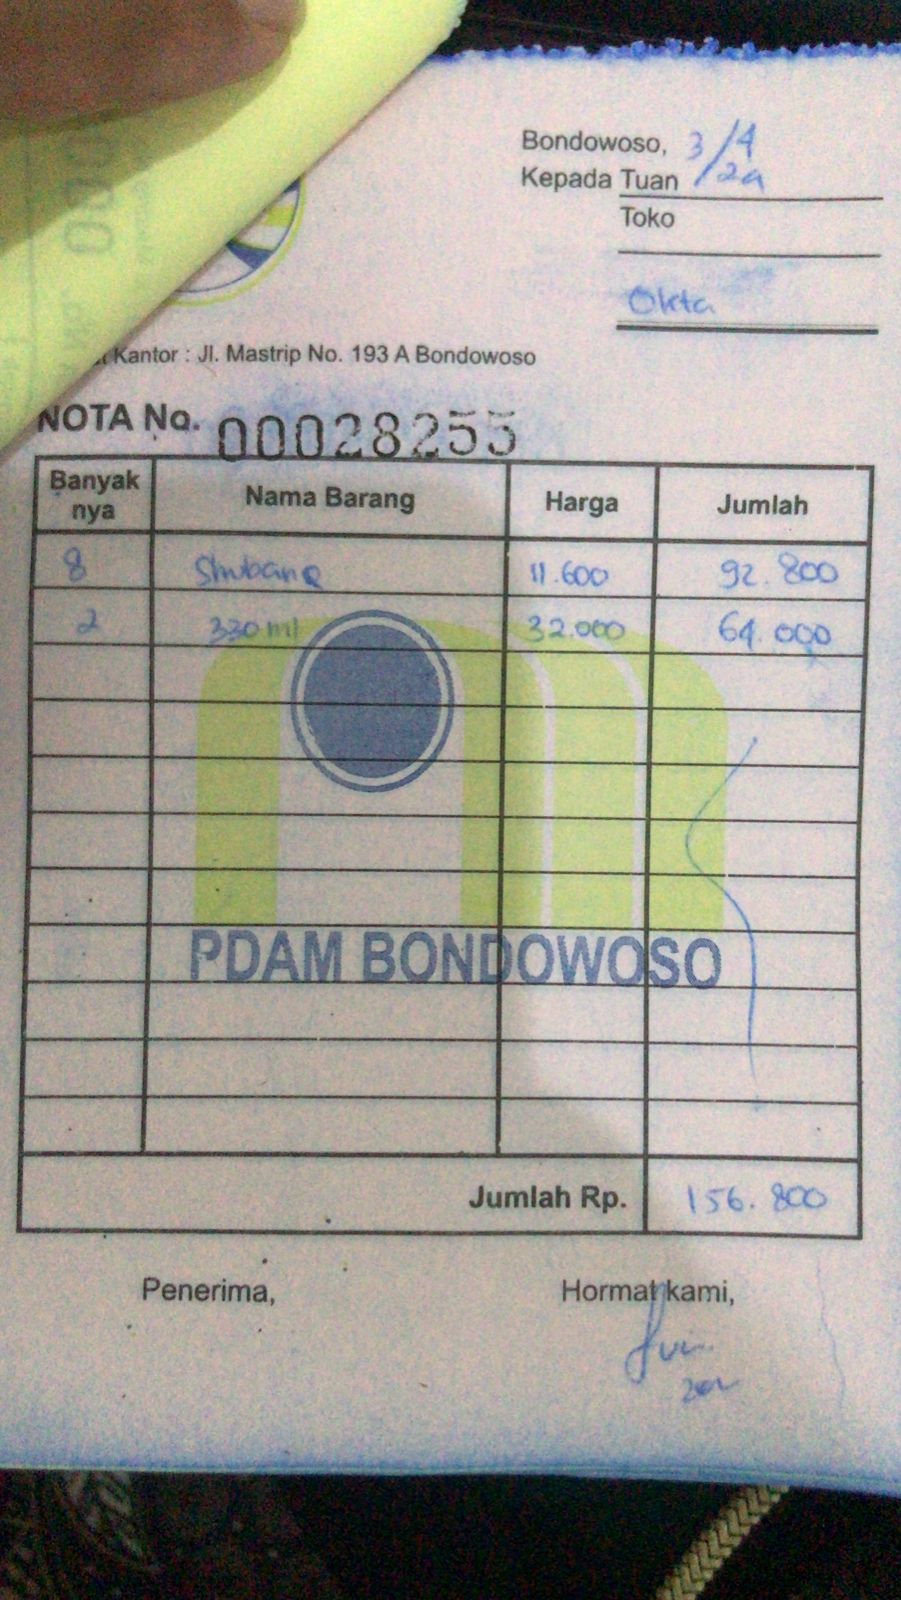 Bondowoso, 3/4
Kepada Tuan
Toko
Okta
Kantor : Jl. Mastrip No. 193 A Bondowoso
NOTA No. 00028255
Banyak nya Nama Barang Harga Jumlah
8 11.600 92.800
2 330 ml 32.000 64.000
PDAM BONDOWOSO
Jumlah Rp. 156.800
Penerima, Hormat kami,